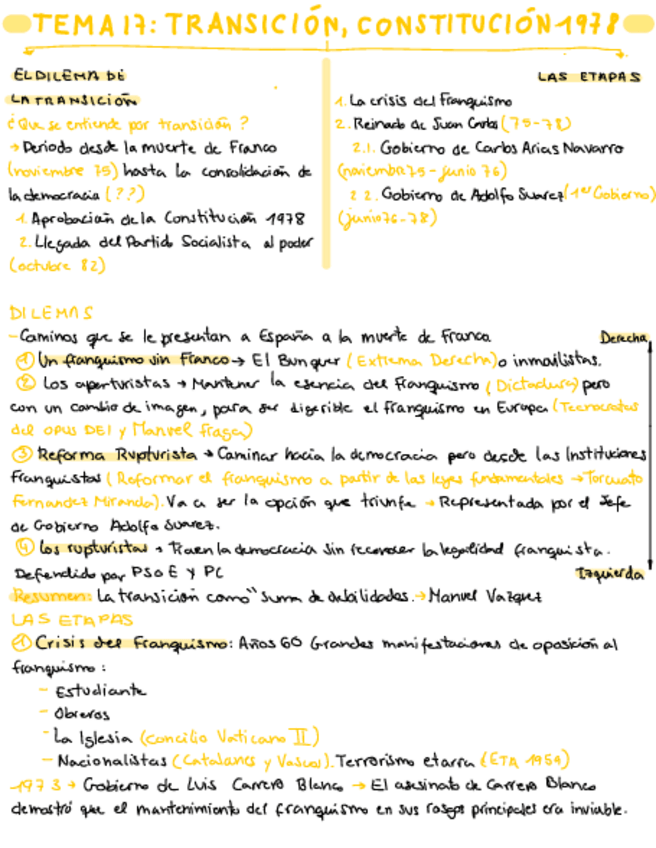 TEMA 17: TRANSICIÓN, CONSTITUCIÓN 1978
EL DILEMA DE
LA TRANSICIÓN
¿Que se entiende por transición?
→ Periodo desde la muerte de Franco
(noviembre 75) hasta la consolidación de
la democracia (??)
1. Aprobación de la Constitución 1978
2. Llegada del Partido Socialista al poder
(octubre 82)
LAS ETAPAS
1. La crisis del Franquismo
2. Reinado de Juan Carlos (75-78)
2.1. Gobierno de Carlos Arias Navarro
(noviembre 75 - junio 76)
2.2. Gobierno de Adolfo Suarez (1er Gobierno)
(junio 76-78)
DILEMAS
- Caminos que se le presentan a España a la muerte de Franco.
Derecha
① Un franquismo sin Franco → El Bunquer (Extrema Derecha) o inmoilistas.
② Los aperturistas → Mantener la esencia del Franquismo (Dictadura) pero
con un cambio de imagen, para ser digerible el franquismo en Europa (Tecnocratas
del opus DEI y Manuel Fraga)
③ Reforma Rupturista → Caminar hacia la democracia pero desde las Instituciones
Franquistas (Reformar el franquismo a partir de las leyes fundamentales → Torcuato
Fernandez Miranda). Va a ser la opción que triunfe → Representada por el Jefe
de Gobierno Adolfo Suarez.
④ Los rupturistas → Traen la democracia sin reconocer la legalidad franquista.
Defendido por PSOE y PC
Izquierda
Resumen: La transición como "suma de debilidades. → Manuel Vazquez
LAS ETAPAS
① Crisis del Franquismo: Años 60 Grandes manifestaciones de oposición al
franquismo:
- Estudiante
- Obreros
- La Iglesia (concilio Vaticano II)
- Nacionalistas (Catalanes y Vascos). Terrorismo etarra (ETA 1959)
- 1973 → Gobierno de Luis Carrero Blanco → El asesinato de Carrero Blanco
demostró que el mantenimiento del franquismo en sus rasgos principales era inviable.